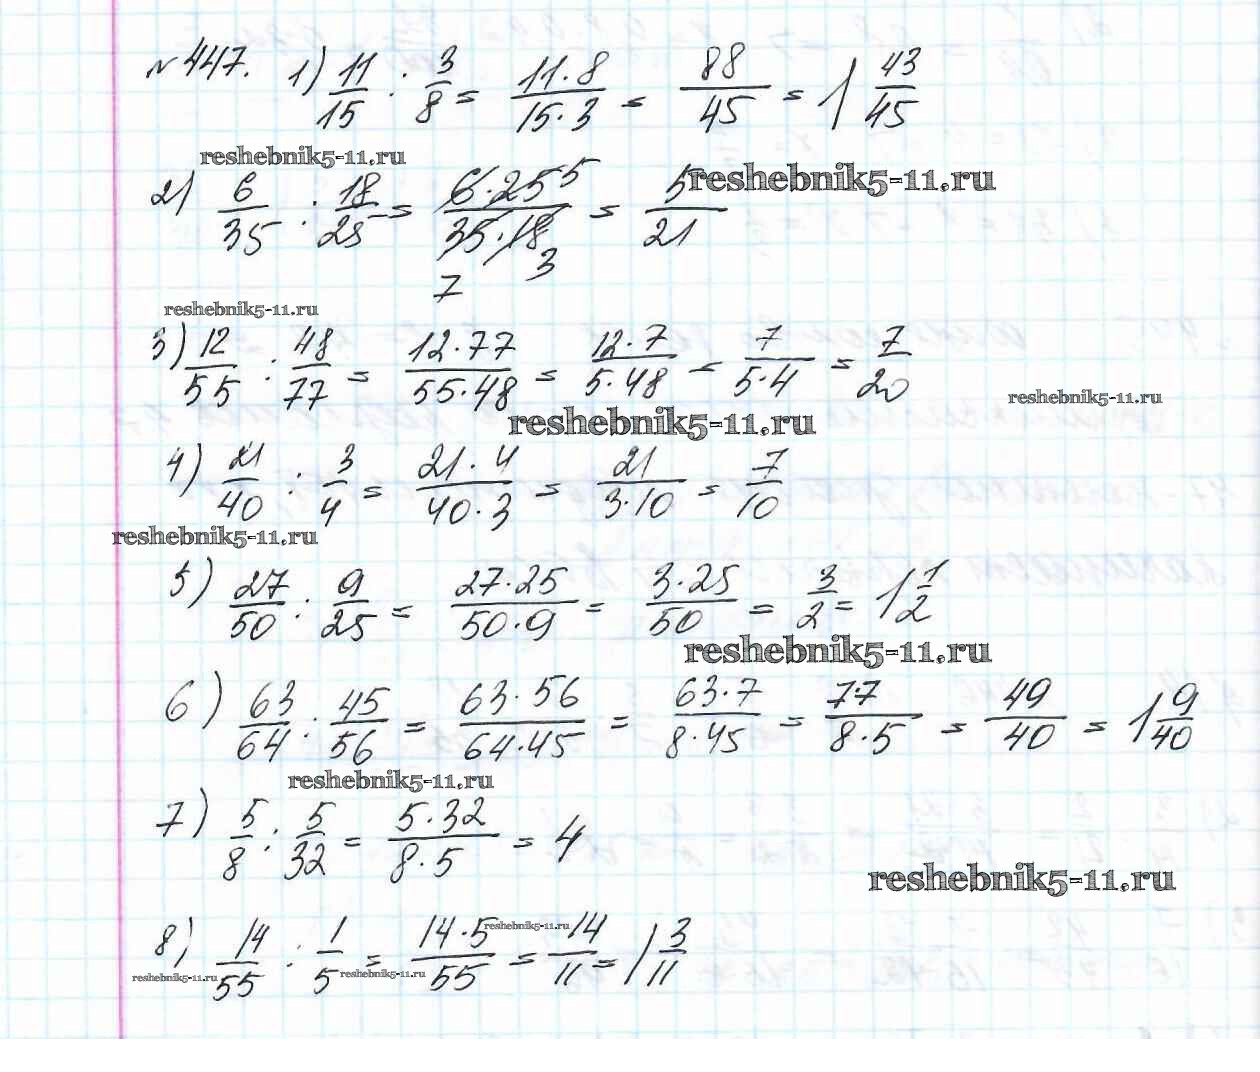 №447. 1) 11/15 : 3/8 = 11·8/15·3 = 88/45 = 1 43/45
reshebnik5-11.ru
reshebnik5-11.ru
2) 6/35 : 18/25 = 6·25 5/35·18 = 5/21
7 3
reshebnik5-11.ru
3) 12/55 : 48/77 = 12·77/55·48 = 12·7/5·48 = 7/5·4 = 7/20
reshebnik5-11.ru
reshebnik5-11.ru
4) 21/40 : 3/4 = 21·4/40·3 = 21/3·10 = 7/10
reshebnik5-11.ru
5) 27/50 : 9/25 = 27·25/50·9 = 3·25/50 = 3/2 = 1 1/2
reshebnik5-11.ru
6) 63/64 : 45/56 = 63·56/64·45 = 63·7/8·45 = 7·7/8·5 = 49/40 = 1 9/40
reshebnik5-11.ru
7) 5/8 : 5/32 = 5·32/8·5 = 4
reshebnik5-11.ru
8) 14/55 : 1/5 = 14·5/55 = 14/11 = 1 3/11
reshebnik5-11.ru
reshebnik5-11.ru
reshebnik5-11.ru